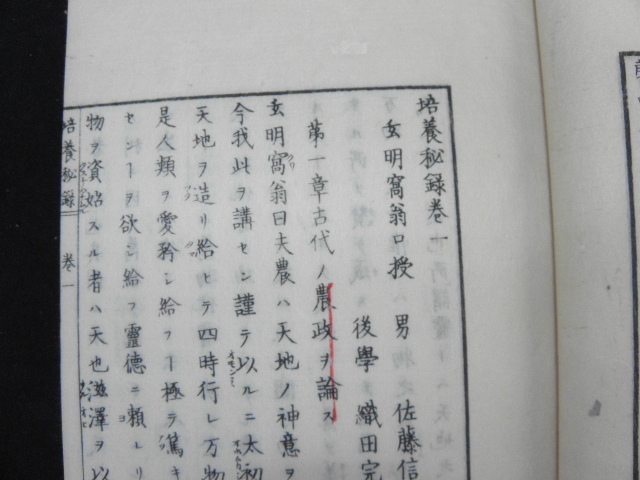 培養秘録巻一
玄明窩翁口授 男 佐藤信
後學 織田完
第一章古代ノ農政ヲ論ス
玄明窩翁曰夫農ハ天地ノ神意ヲ
今我此ヲ講セン謹テ以ルニ太初
天地ヲ造リ給ヒテ四時行レ万物
是人類ヲ愛矜シ給フ丅極テ篤キ
セシ丅ヲ欲シ給フ靈德ニ頼レリ
物ヲ資始スル者ハ天也滋澤ヲ以
培養秘録 巻一